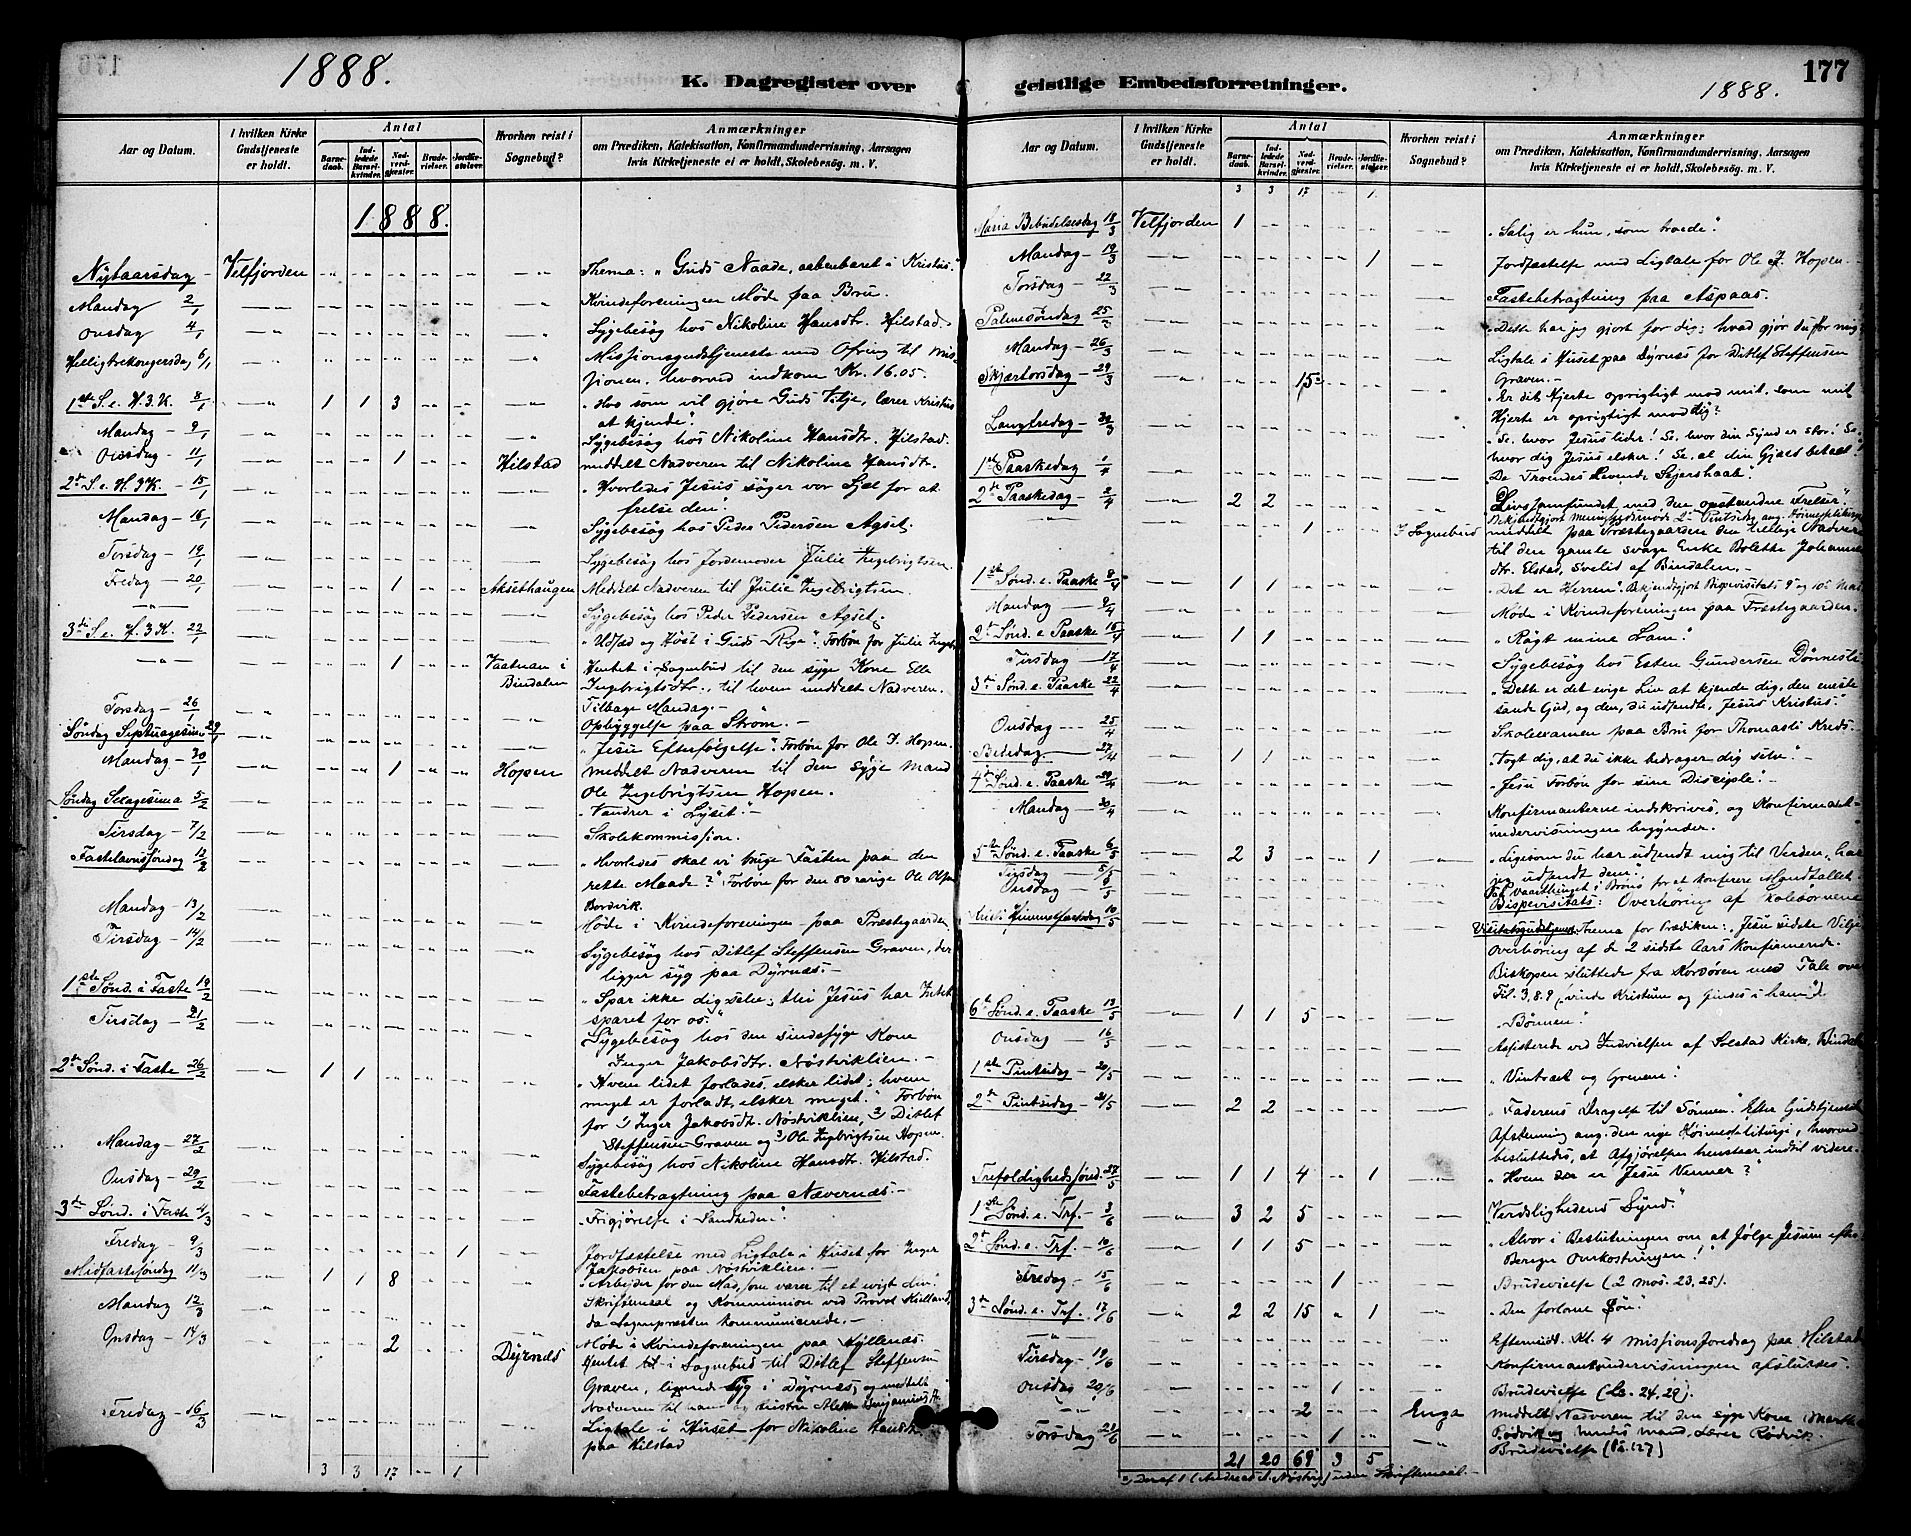 1888.
K. Dagregister over
Aar og Datum.
I hvilken Kirke Gudstjeneste er holdt.
Antal
Barnedaab.
Indledede Barselkvinder.
Nadverdgjester.
Brudevielser.
Jordfæstelser.
Hvorhen reist i Sognebud?
Anmærkninger
om Prædiken, Katekisation, Konfirmandundervisning, Aarsagen
hvis Kirketjeneste ei er holdt, Skolebesøg. m. V.
1888.
Nytaarsdag - Velfjorden Thema: "Guds Naade, aabenbaret i Kristus."
Mandag 2/1 Kvindeforeningen Møde paa Bru.
Onsdag 4/1 Sygebesøg hos Nikoline Hansdtr. Hilstad.
Helligtrekongersdag 6/1 Missionsgudstjeneste med Ofring til Mis-
sionen, hvorved indkom Kr. 16.05.
1ste S. e. H. 3 K. 8/1 1 1 3 "Hvo som vil gjøre Guds Vilje, lærer Kristus
at kjende".
Mandag - 9/1 Sygebesøg hos Nikoline Hansdtr. Hilstad.
Onsdag - 11/1 1 Hilstad meddelt Nadveren til Nikoline Hansdtr.
2den S. e. H. 3 K. - 15/1 "Hvorledes Jesus søger vor Sjæl for at
frelse den".
Mandag - 16/1 Sygebesøg hos Peder Pedersen Agset.
Torsdag - 19/1 Sygebesøg hos Jordemoder Julie Ingebrigtsen.
Fredag - 20/1 1 Aksethaugen Meddelt Nadveren til Julie Ingebrigtsen.
Sygebesøg hos Peder Pedersen Agset.
3die S. e. H. 3 K. 22/1 "Udsæd og Høst i Guds Rige". Forbøn for Julie Ingebr.
1 Vaatnan i Hentet i Sognebud til den syge Kone Elle
Bindalen Ingebrigtsdtr., til hvem meddelt Nadveren.
Tilbage Mandag. -
Torsdag - 26/1 Opbyggelse paa Strøm. -
Søndag Septuagesima 29/1 "Jesu Efterfølgelse". Forbøn for Ole I. Hopen.
Mandag - 30/1 1 Hopen meddelt Nadveren til den syge Mand
Ole Ingebrigtsen Hopen.
Søndag Sexagesima 5/2 "Vandrer i Lyset". -
Tirsdag - 7/2 Skolekommission.
Fastelavnssøndag 12/2 "Hvorledes skal vi bruge Fasten paa den
rette Maade?" Forbøn for den 80 aarige Ole Olsen
Bordvik.
Mandag - 13/2 Møde i Kvindeforeningen paa Præstegaarden
Tirsdag - 14/2 Sygebesøg hos Ditlef Steffensen Graven, der
ligger syg paa Dyrnæs. -
1ste Sønd. i Faste 19/2 "Spar ikke dig selv; thi Jesus har Intet
sparet for os."
Tirsdag - 21/2 Sygebesøg hos den sindssyge Kone
Inger Jakobsdtr. Nøstviklien. -
2den Sønd. i Faste 26/2 1 1 "Hvem lidet forlades, elsker lidet; hvem
meget er forladt, elsker meget." Forbøn
for 1) Inger Jakobsdtr. Nøstviklien, 2) Ditlef
Steffensen Graven og 3) Ole Ingebrigtsen Hopen.
Mandag - 27/2 Sygebesøg hos Nikoline Hansdtr. Hilstad.
Onsdag - 29/2 Fastebetragtning paa Nævernæs. -
3die Sønd. i Faste 4/3 "Frigjørelse i Sandheden."
Fredag - 9/3 1 Jordfæstelse med Ligtale i Huset for Inger
Jakobsen paa Nøstviklien.
Midfastesøndag 11/3 1 1 8 "Arbeider for den Mad, som varer til et evigt Liv."
Skriftemaal og Kommunion ved Provst Kielland,
da Sognepræsten kommuniserede. -
Mandag 12/3 Møde i Kvindeforeningen paa Hyllenæs.
Onsdag - 14/3 2 Dyrnæs Hentet i Sognebud til Ditlef Steffensen
Graven, liggende syg i Dyrnæs, og meddelt
Nadveren til ham og
Fredag - 16/3 Ligtale i Huset for Nikoline Hansdtr.
paa Hilstad
3 3 17 - 1
geistlige Embedsforretninger.
1888.
177
Aar og Datum.
I hvilken Kirke Gudstjeneste er holdt.
Antal
Barnedaab.
Indledede Barselkvinder.
Nadverdgjester.
Brudevielser.
Jordfæstelser.
Hvorhen reist i Sognebud?
Anmærkninger
om Prædiken, Katekisation, Konfirmandundervisning, Aarsagen
hvis Kirketjeneste ei er holdt, Skolebesøg. m. V.
3 3 17 - 1
Maria Bebudelsesdag 18/3 Velfjorden 1 "Salig er hun, som troede".
Mandag - 19/3 1 Jordfæstelse med Ligtale for Ole I. Hopen.
Torsdag - 22/3 Fastebetragtning paa Aspaas.
Palmesøndag 25/3 "Dette har jeg gjort for dig; hvad gjør du for mig"
Mandag - 26/3 Ligtale i Huset paa Dyrnæs for Ditlef Steffensen
Graven. -
Skjærtorsdag - 29/3 15 "Er dit Hjerte oprigtigt mod mit, som mit
Hjerte er oprigtigt mod dig?"
Langfredag - 30/3 "Se, hvor Jesus lider! Se, hvor din Synd er stor! Se,
hvor dig Jesus elsker! Se, at din Gjæld betalt!"
1ste Paaskedag 1/4 "De Troendes levende Seiershaab."
2den Paaskedag - 2/4 2 2 "Livssamfundet med den opstandne Frelser".
1 I Sognebud meddelt paa Præstegaarden den hellige Nadvere
til den gamle svage Enke Bolette Johanne
dtr. Elstad, Svelid af Bindalen. -
1ste Sønd. e. Paaske 8/4 1 1 "Det er Herren". Bekjendtgjort Bispevisitats 9de og 10de Mai
Mandag - 9/4 Møde i Kvindeforeningen paa Præstegaarden.
2den Sønd. e. Paaske 15/4 1 1 "Røgt mine Lam".
Tirsdag - 17/4 Sygebesøg hos Esten Gundersen
3die Sønd. e. Paaske 22/4 "Dette er det evige Liv at kjende dig, den eneste
sande Gud, og den, du udsendte, Jesus Kristus."
Onsdag - 25/4 Skoleexamen paa Bru for Kreds.
Bededag - 27/4 1 1 "Vogt dig, at du ikke bedrager dig selv." -
4de Sønd. e. Paaske 29/4 "Jesu Forbøn for sine Disciple".
Mandag - 30/4 Konfirmanterne indskrives, og Konfirmant-
undervisningen begynder.
5te Sønd. e. Paaske 6/5 2 3 1 "Ligesom du har udsendt mig til Verden, har
jeg udsendt dem".
Tirsdag - 8/5 Paa Vaarthinget i Brønø for at konferere Mandtallet
Onsdag - 9/5 Bispevisitats: Overhøring af Skolebørnene
Kristi Himmelfartsdag 10/5 Visitatsgudstjeneste. Thema for Prædiken: "Jesu sidste Vilje
Overhøring af de 2 sidste Aars Konfirmerede.
Biskopen sluttede fra Kordøren med Tale over
Fil. 3, 8. 9 ("vinde Kristum og findes i ham").
6te Sønd. e. Paaske 13/5 1 1 5 "Bønnen".
Onsdag - 16/5 Assisterede ved Indvielsen af Solstad Kirke, Bindal
1ste Pintsedag - 20/5 "Vintræet og Grenene".
2den Pintsedag - 21/5 2 2 "Faderens Dragelse til Sønnen". Efter Gudstjenesten
Afstemning ang. den nye Høimesseliturgi, hvorved
besluttedes, at Afgjørelsen henstaar indtil videre.
Trefoldighedssønd. 27/5 1 1 4 1 "Hvem der er Jesu Venner?"
1ste Sønd. e. Trf. - 3/6 3 2 5 "Verdslighedens Synd."
2den Sønd. e. Trf. - 10/6 1 1 5 "Alvor i Beslutningen om at følge Jesum efter.
Beregn Omkostningen!"
Fredag - 15/6 1 Brudevielse (2 Mos. 23, 25).
3die Sønd. e. Trf. - 17/6 2 2 15 1 "Den fortabte Søn".
Eftermidd. Kl. 4 Missionsforedrag paa Hilstad
Tirsdag - 19/6 Konfirmantundervisningen afsluttes.
Onsdag 20/6 1 Brudevielse (Lc. 24, 29).
2 Enga meddelt Nadveren til den syge Kone
Rødvik og hendes Mand, Lærer Rødvik.
Torsdag 21/6 1 Brudevielse (Ps. 127)
21 20 69 3 5